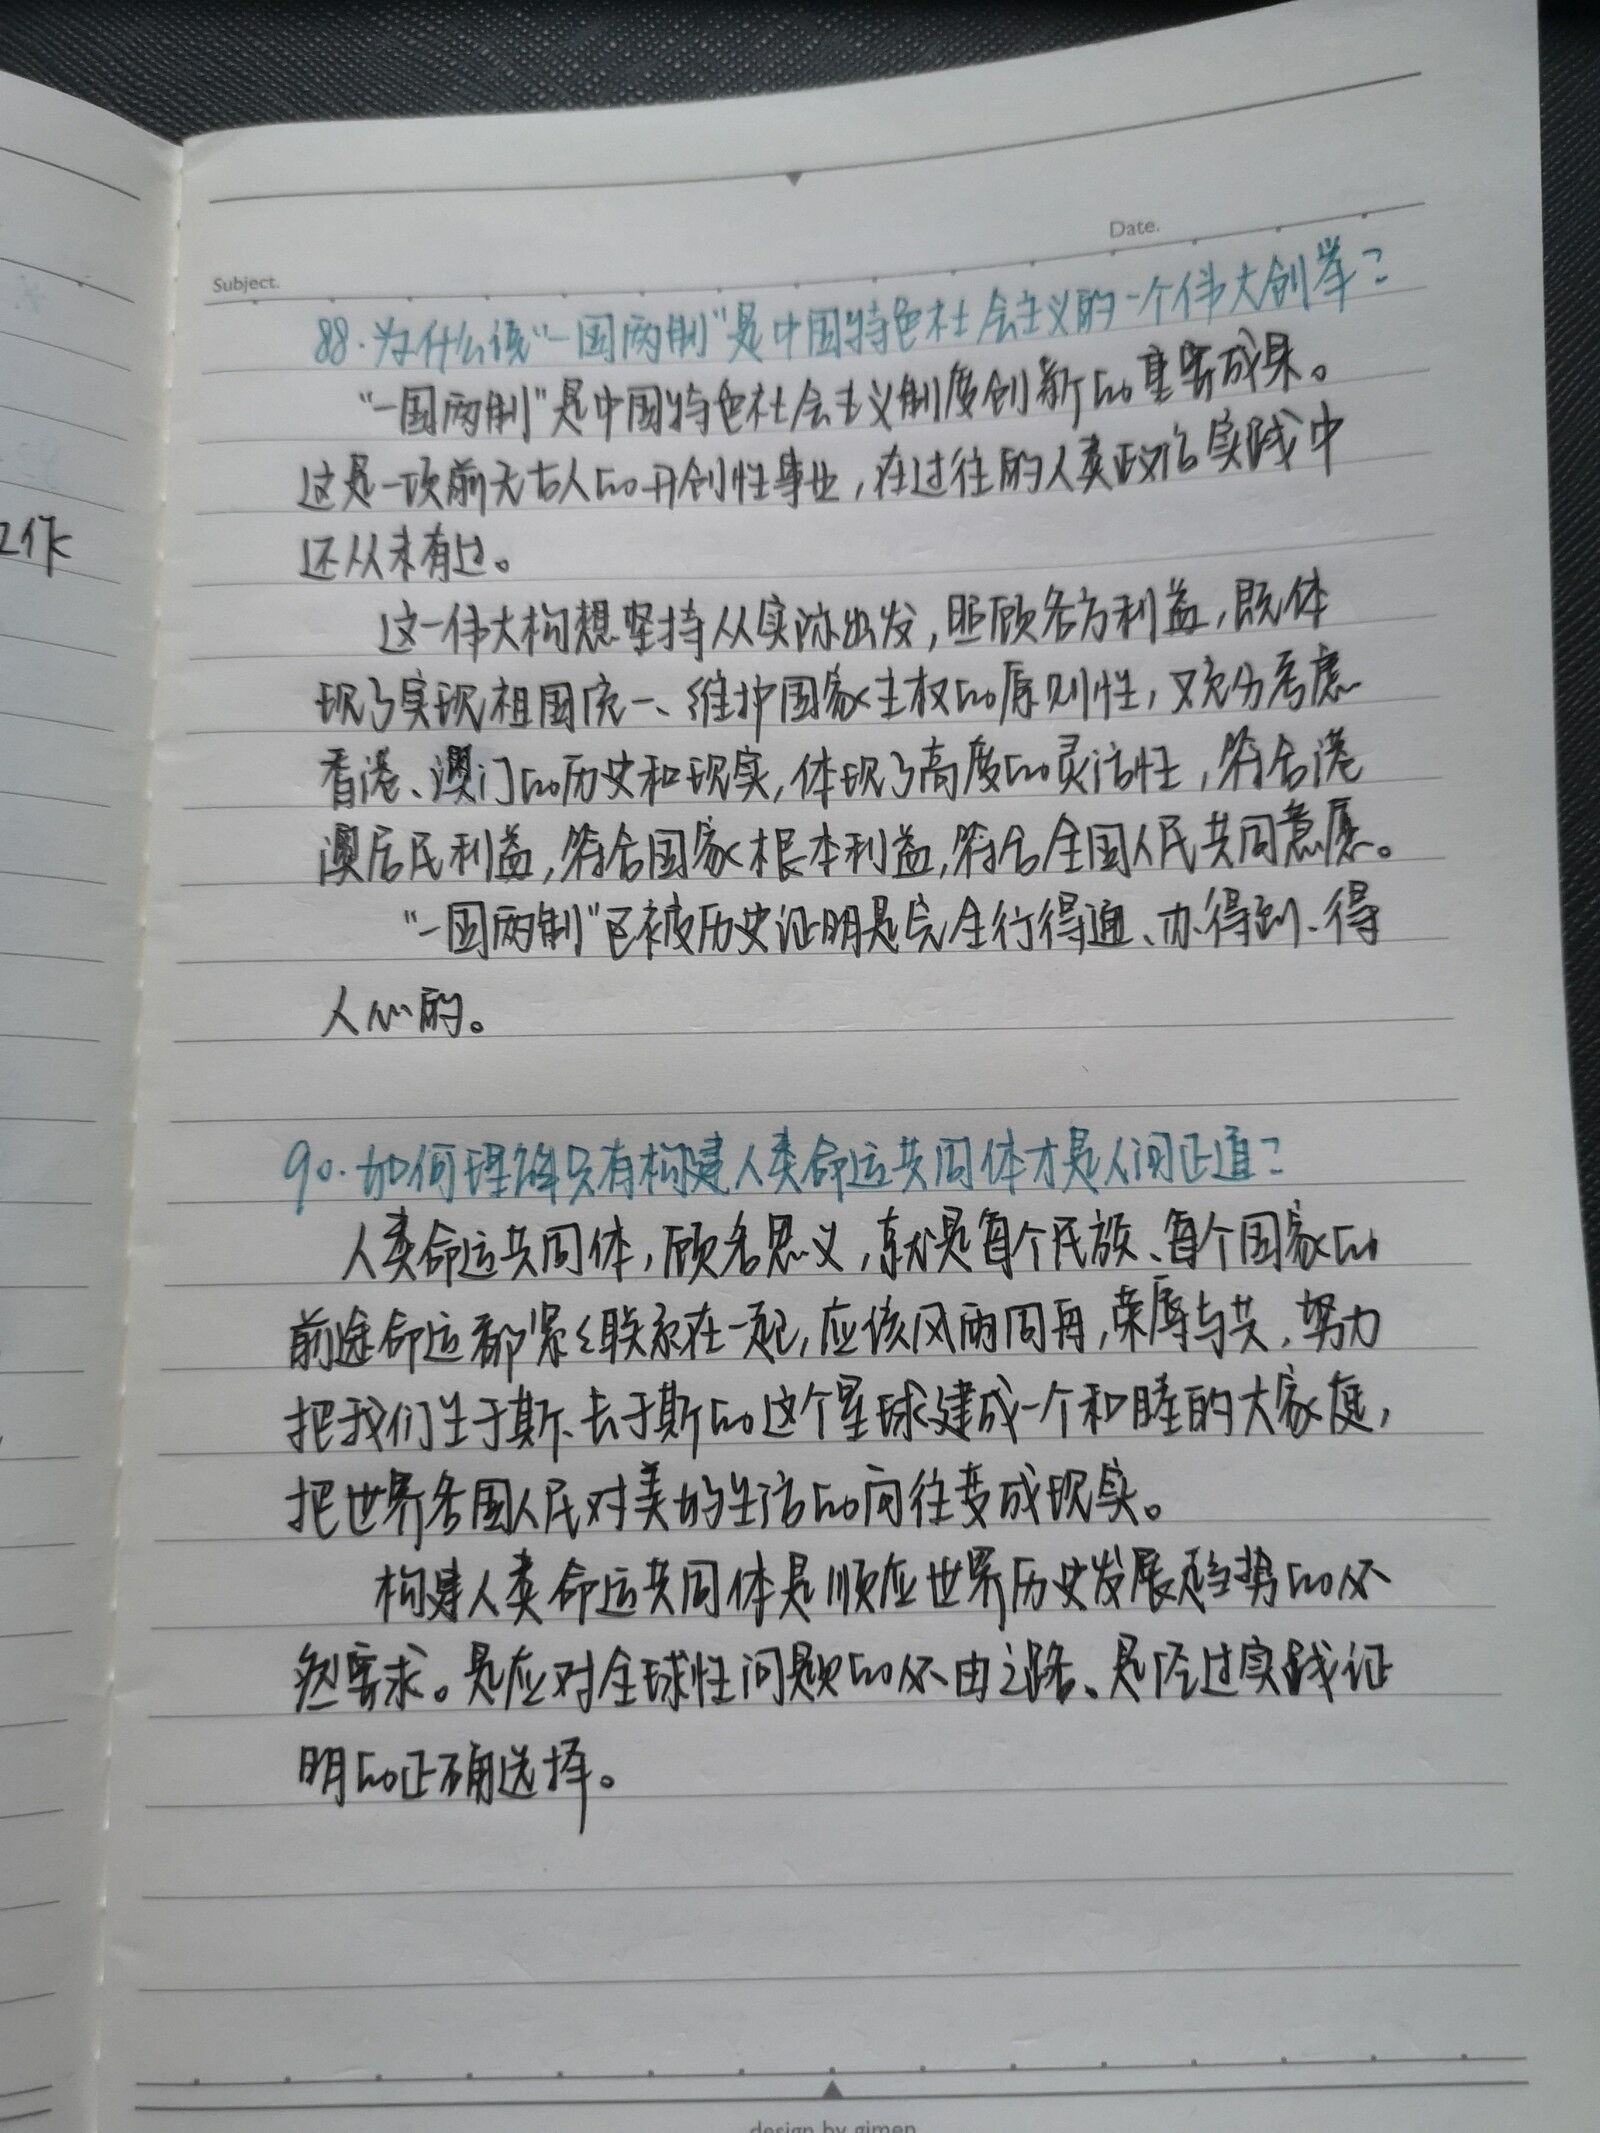 Date.
Subject.
88.为什么说“一国两制”是中国特色社会主义的一个伟大创举？
“一国两制”是中国特色社会主义制度创新的重要成果。
这是一项前无古人的开创性事业，在过往的人类政治实践中
还从未有过。
这一伟大构想坚持从实际出发，照顾各方利益，既体
现了实现祖国统一、维护国家主权的原则性，又充分考虑
香港、澳门的历史和现实，体现了高度的灵活性，符合港
澳居民利益，符合国家根本利益，符合全国人民共同意愿。
“一国两制”已被历史证明是完全行得通、办得到、得
人心的。
工作
90.如何理解只有构建人类命运共同体才是人间正道？
人类命运共同体，顾名思义，就是每个民族、每个国家的
前途命运都紧紧联系在一起，应该风雨同舟，荣辱与共，努力
把我们生于斯、长于斯的这个星球建成一个和睦的大家庭，
把世界各国人民对美好生活的向往变成现实。
构建人类命运共同体是顺应世界历史发展趋势的必
然要求。是应对全球性问题的必由之路、是经过实践证
明的正确选择。
design by gimen